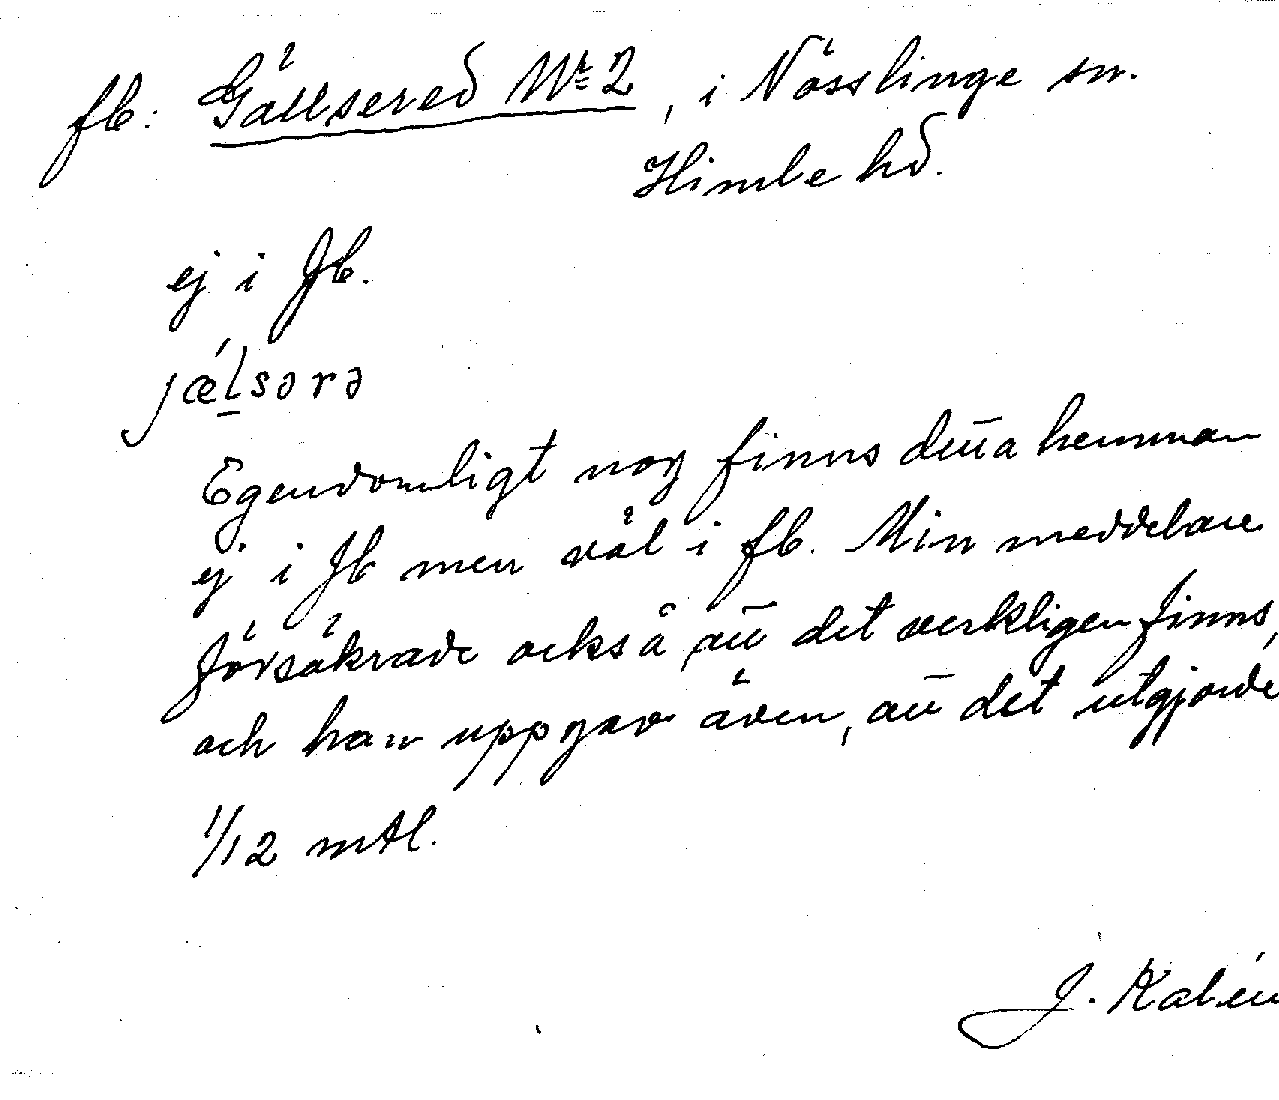 fb: Gällsered Nr 2, i Nösslinge sn.
Himle hd.
ej i Jb.
jǽl̠sərə
Egendomligt nog finns detta hemman
ej i Jb men väl i fb. Min meddelare
försäkrade också, att det verkligen finns,
och han uppgav även, att det utgjorde
1/12 mtl.
J. Kalén